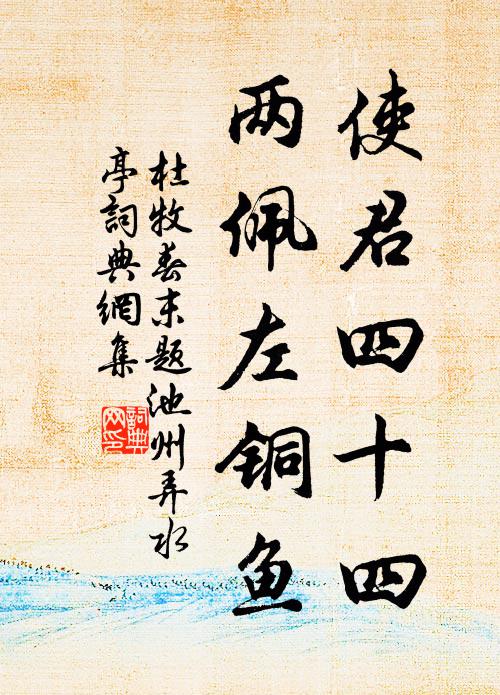 使君四十四
两佩左铜鱼
杜牧春末题池州弄水
亭詞典網集
詞典
网印